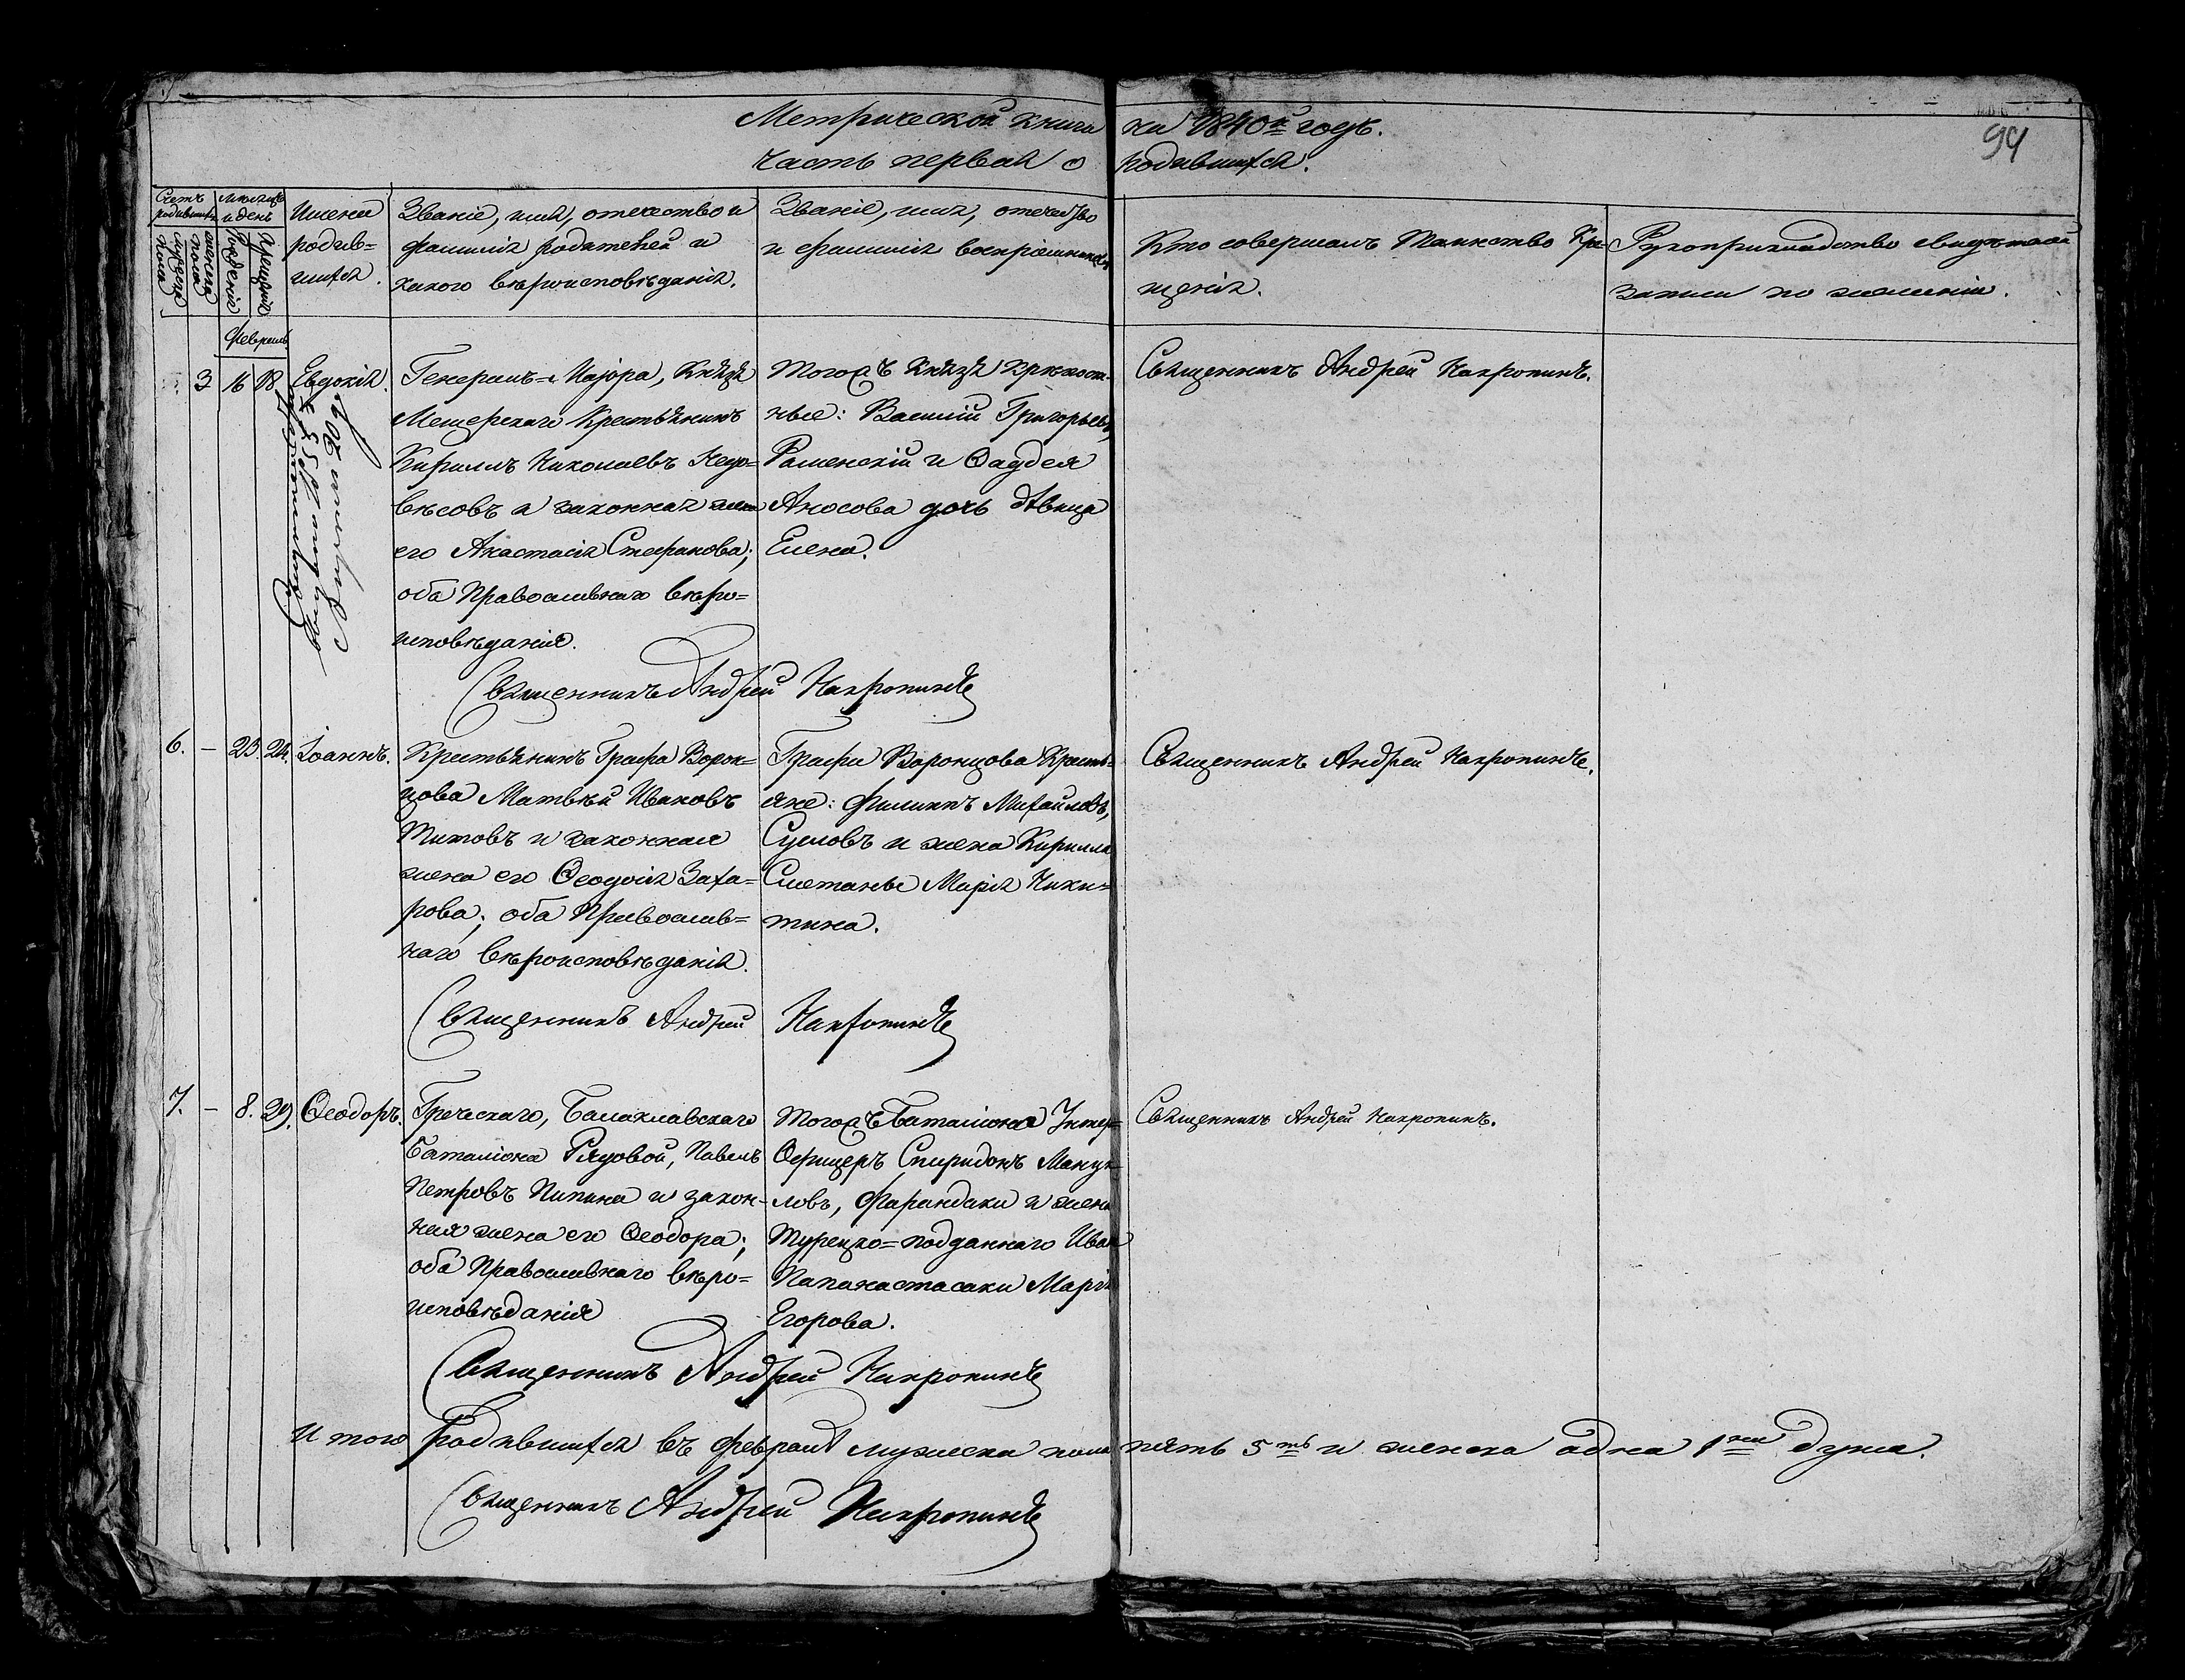 Метрической книги на 1840й годъ.
часть первая о родившихся.
94
Счетъ родившихся
мужеска пола
женска пола
месяцъ и день
Рожденіе
Крещеніе
Имена
родив=
шихся.
Званіе, имя, отечество и
фамилія родителей и
какого вѣроисповѣданія.
Званіе, имя, отечество
и фамилія воспріемниковъ
Кто совершалъ Таинство Кре=
щенія.
Рукоприкладство свидѣтелей
записи по желанію.
Февраль
3 16 18 Евдокія.
Генералъ=Маіора, Князя
Мещерскаго Крестьянинъ
Кириллъ Николаевъ Недо=
вѣсовъ и законная жена
его Анастасія Стефанова;
оба Православнаго вѣро=
исповѣданія.
Тогожъ Князя крѣпост=
ные: Василій Григорьевъ,
Раменскій и Фаддея
Аносова дочь дѣвица
Елена.
Священникъ Андрей Накропинъ.
Священникъ Андрей Накропинъ
6. – 23. 24. Іоаннъ.
Крестьянинъ Графа Ворон=
цова Матвѣй Ивановъ
Титовъ и законная
жена его Ѳеодосія Заха=
рова; оба Православ=
наго вѣроисповѣданія.
Графа Воронцова Кресть=
яне: Филиппъ Михайловъ,
Сусловъ и жена Кирилла
Сметаны Марія Ники=
тина.
Священникъ Андрей Накропинъ.
Священникъ Андрей Накропинъ
7. – 8. 29. Ѳеодоръ.
Греческаго, Балаклавскаго
Баталіона Рядовой, Павелъ
Петровъ Пипина и закон=
ная жена его Ѳеодора;
оба Православнаго вѣро=
исповѣданія
Тогожъ Баталіона Унтеръ=
Офицеръ Спиридонъ Мануи=
ловъ, Фарандаки и жена
Турецко=подданнаго Ивана
Папанастасаки Марія
Егорова.
Священникъ Андрей Накропинъ.
Священникъ Андрей Накропинъ
И того родившихся въ Февралѣ мужеска пола пять 5ть и женска одна 1на душа.
Священникъ Андрей Накропинъ